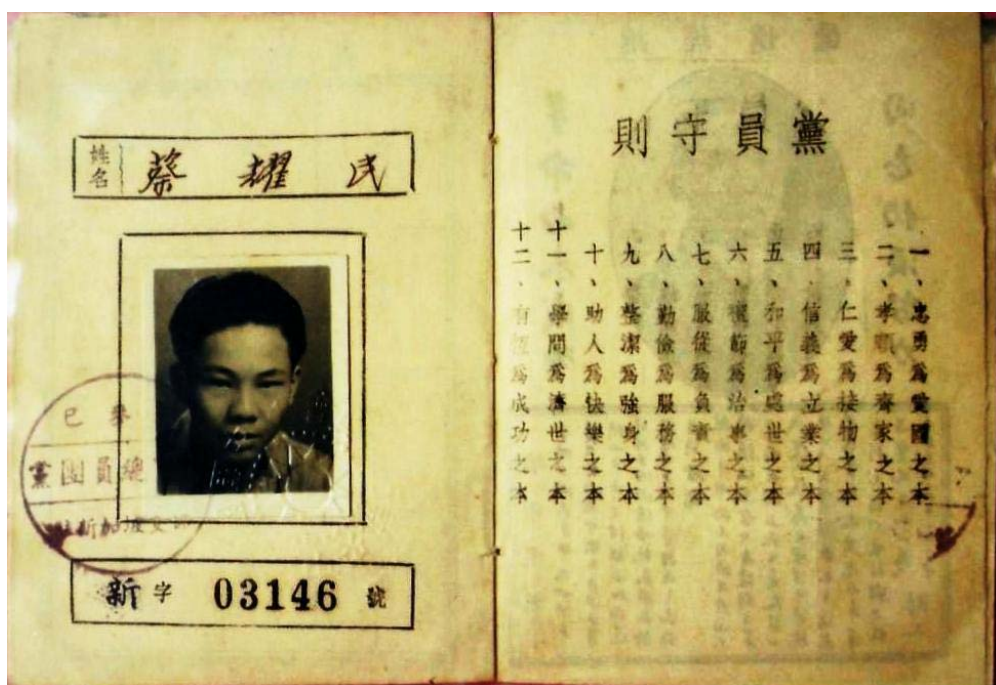 姓名 蔡耀民
黨團員總
新加坡支
新字 03146 號
黨員守則
一、忠勇爲愛國之本
二、孝順爲齊家之本
三、仁愛爲接物之本
四、信義爲立業之本
五、和平爲處世之本
六、禮節爲治事之本
七、服從爲負責之本
八、勤儉爲服務之本
九、整潔爲強身之本
十、助人爲快樂之本
十一、學問爲濟世之本
十二、有恆爲成功之本